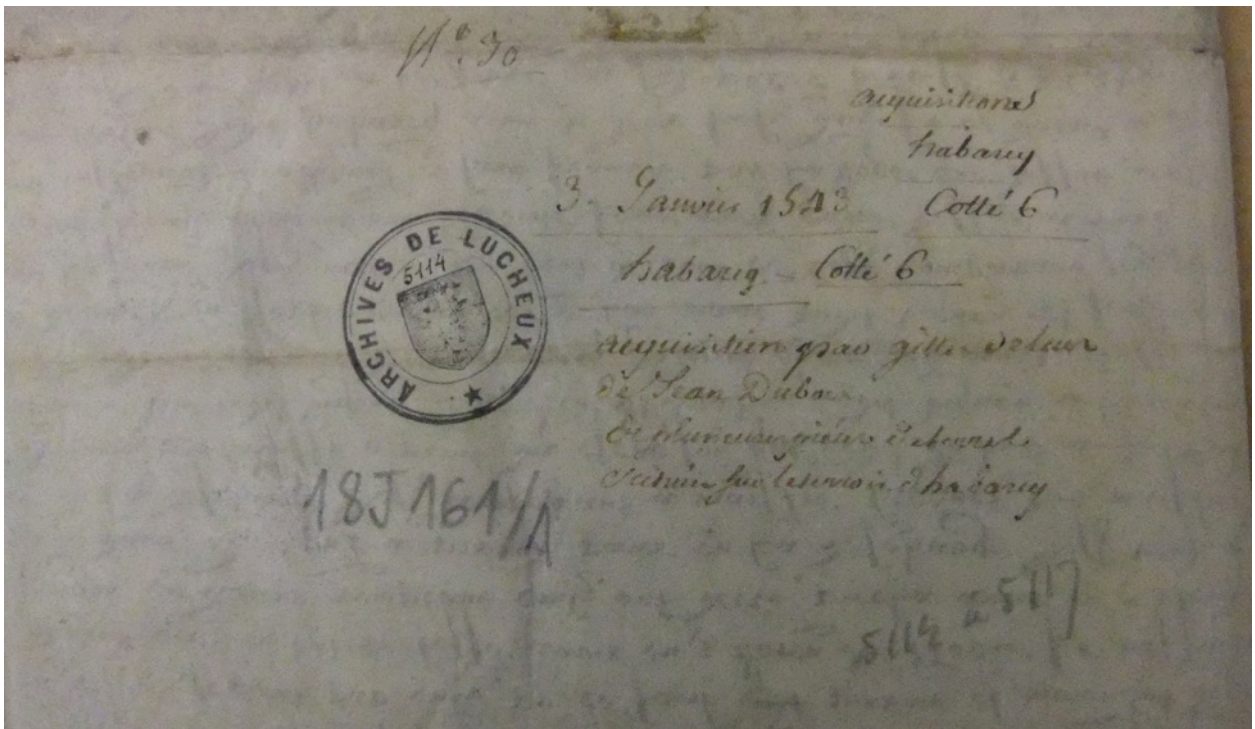 N° 30
acquisitions
habarcq
3 Janvier 1543 Cotté 6
habarcq Cotté 6
ARCHIVES DE LUCHEUX
5114
acquisition par gilles
de Jean Dubois
de
scitués sur le terroir d'habarcq
18J161/1
5114 a 5117